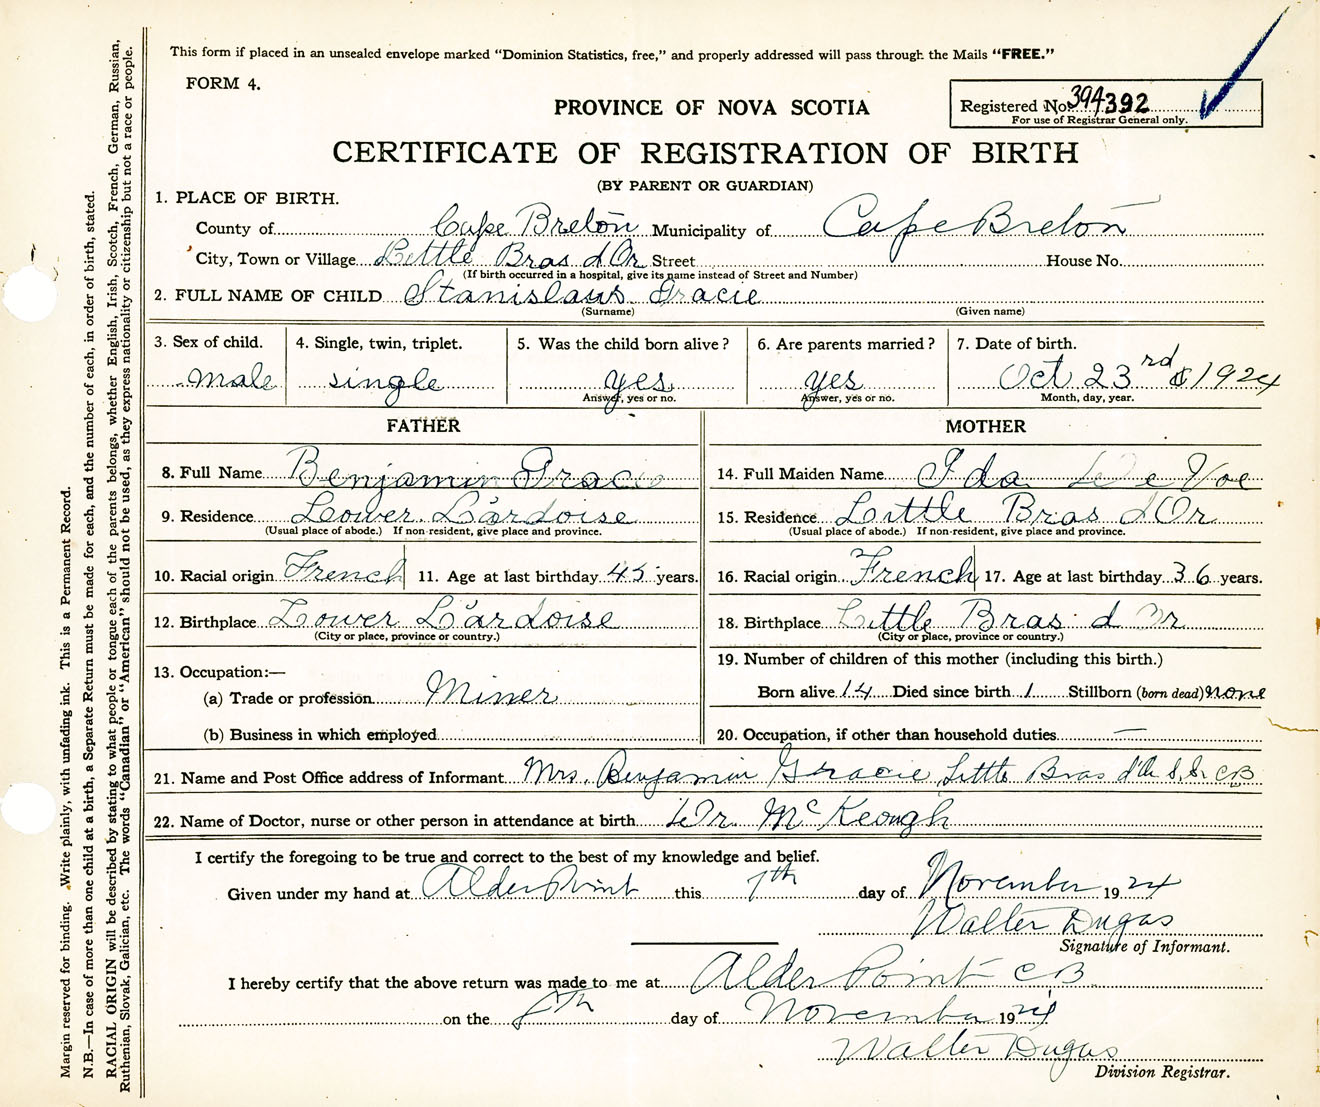 This form if placed in an unsealed envelope marked "Dominion Statistics, free," and properly addressed will pass through the Mails "FREE."
FORM 4.
PROVINCE OF NOVA SCOTIA
Registered No. 394392
For use of Registrar General only.
CERTIFICATE OF REGISTRATION OF BIRTH
(BY PARENT OR GUARDIAN)
1. PLACE OF BIRTH.
County of Cape Breton Municipality of Cape Breton
City, Town or Village Little Bras d'Or Street House No.
(If birth occurred in a hospital, give its name instead of Street and Number)
2. FULL NAME OF CHILD Stanislaus Gracie
(Surname) (Given name)
3. Sex of child. 4. Single, twin, triplet. 5. Was the child born alive? 6. Are parents married? 7. Date of birth.
male single yes yes Oct 23rd 1924
Answer, yes or no. Answer, yes or no. Month, day, year.
FATHER MOTHER
8. Full Name Benjamin Gracie 14. Full Maiden Name Ida De Voe
9. Residence Lower L'ardoise 15. Residence Little Bras d'Or
(Usual place of abode.) If non-resident, give place and province. (Usual place of abode.) If non-resident, give place and province.
10. Racial origin French 11. Age at last birthday 45 years. 16. Racial origin French 17. Age at last birthday 36 years.
12. Birthplace Lower L'ardoise 18. Birthplace Little Bras d Or
(City or place, province or country.) (City or place, province or country.)
13. Occupation:— 19. Number of children of this mother (including this birth.)
(a) Trade or profession Miner Born alive 14 Died since birth 1 Stillborn (born dead) none
(b) Business in which employed 20. Occupation, if other than household duties —
21. Name and Post Office address of Informant Mrs. Benjamin Gracie, Little Bras d'Or CB
22. Name of Doctor, nurse or other person in attendance at birth Dr. McKeough
I certify the foregoing to be true and correct to the best of my knowledge and belief.
Given under my hand at Alder Point this 7th day of November 1924
Walter Dugas
Signature of Informant.
I hereby certify that the above return was made to me at Alder Point CB
on the 8th day of November 1924
Walter Dugas
Division Registrar.
Margin reserved for binding. Write plainly, with unfading ink. This is a Permanent Record.
N.B.—In case of more than one child at a birth, a Separate Return must be made for each, and the number of each, in order of birth, stated.
RACIAL ORIGIN will be described by stating to what people or tongue each of the parents belongs, whether English, Irish, Scotch, French, German, Russian,
Ruthenian, Slovak, Galician, etc. The words "Canadian" or "American" should not be used, as they express nationality or citizenship but not a race or people.